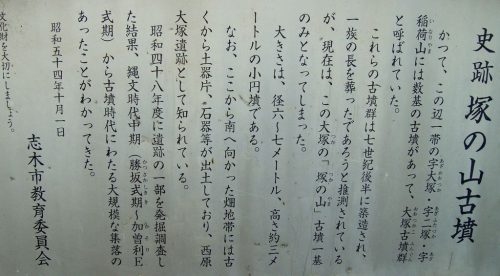 史跡 塚の山古墳
かつて、この辺一帯の字大塚・字二塚・字
稲荷山には数基の古墳があって、大塚古墳群
と呼ばれていた。
これらの古墳群は七世紀後半に築造され、
一族の長を葬ったであろうと推測されている
が、現在は、この大塚の「塚の山」古墳一基
のみとなってしまった。
大きさは、径六〜七メートル、高さ約三メ
ートルの小円墳である。
なお、ここから南へ向かった畑地帯には古
くから土器片、石器等が出土しており、西原
大塚遺跡として知られている。
昭和四十八年度に遺跡の一部を発掘調査し
た結果、縄文時代中期(勝坂式期〜加曽利E
式期)から古墳時代にわたる大規模な集落の
あったことがわかってきた。
昭和五十四年十月一日
志木市教育委員会
文化財を大切にしましょう。